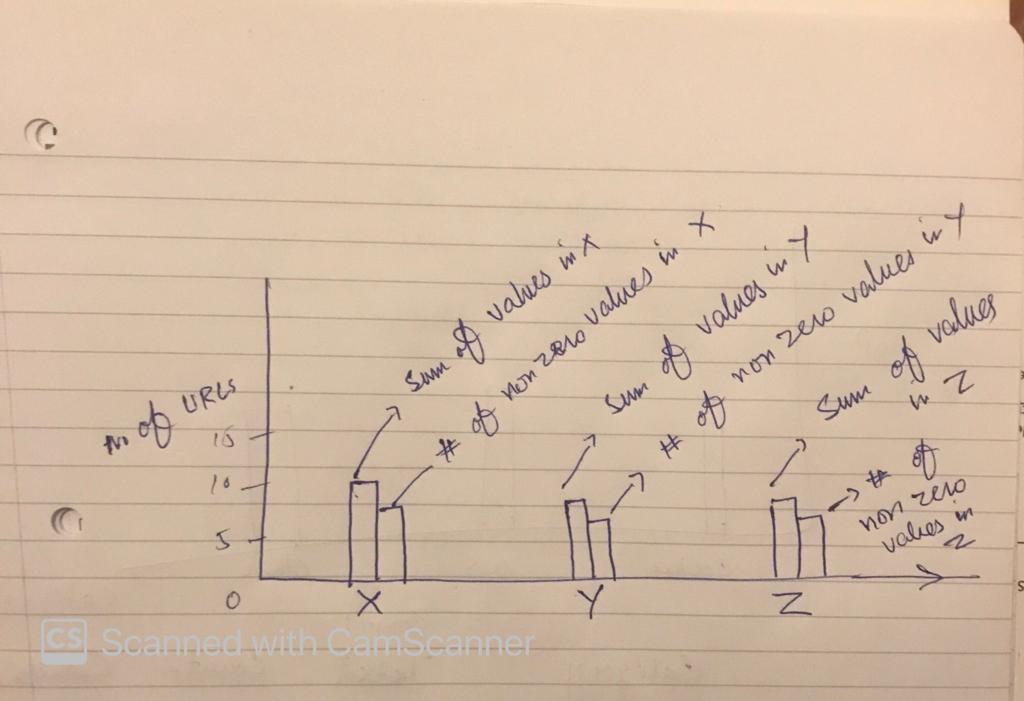 sum of values in X
# of non zero values in X
sum of values in Y
# of non zero values in Y
sum of values
in Z
# of
non zero
values in
Z
no of URLs
15
10
5
0
X
Y
Z
CS Scanned with CamScanner